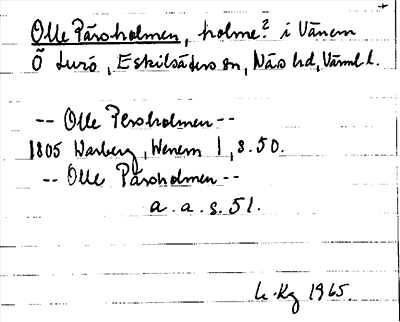 Olle Pärsholmen, holme? i Vänern
Ö Lurö, Eskilsäters sn, Näs hd, Värml l.
-- Olle Persholmen --
1805 Warberg, Wenern 1, s. 50.
-- Olle Pärsholmen --
a. a. s. 51.
1965.